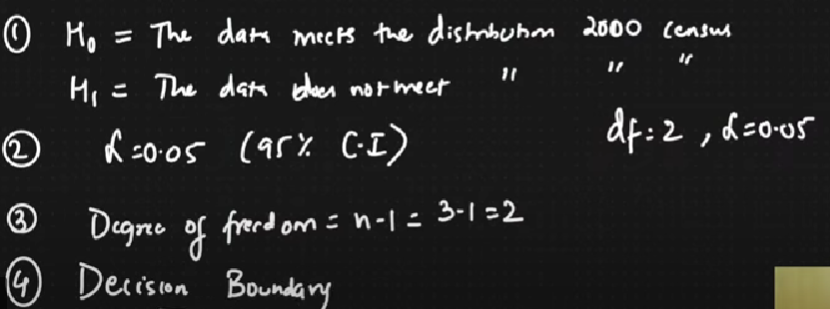 ① H₀ = The data meets the distribution 2000 census
H₁ = The data does not meet " " "
② α=0.05 (95% C.I)
df=2, α=0.05
③ Degree of freedom = n-1 = 3-1=2
④ Decision Boundary